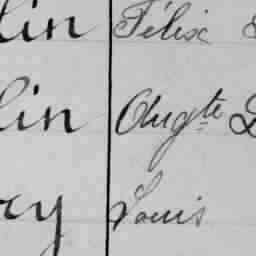 lin Félix
lin Augte
cy Louis